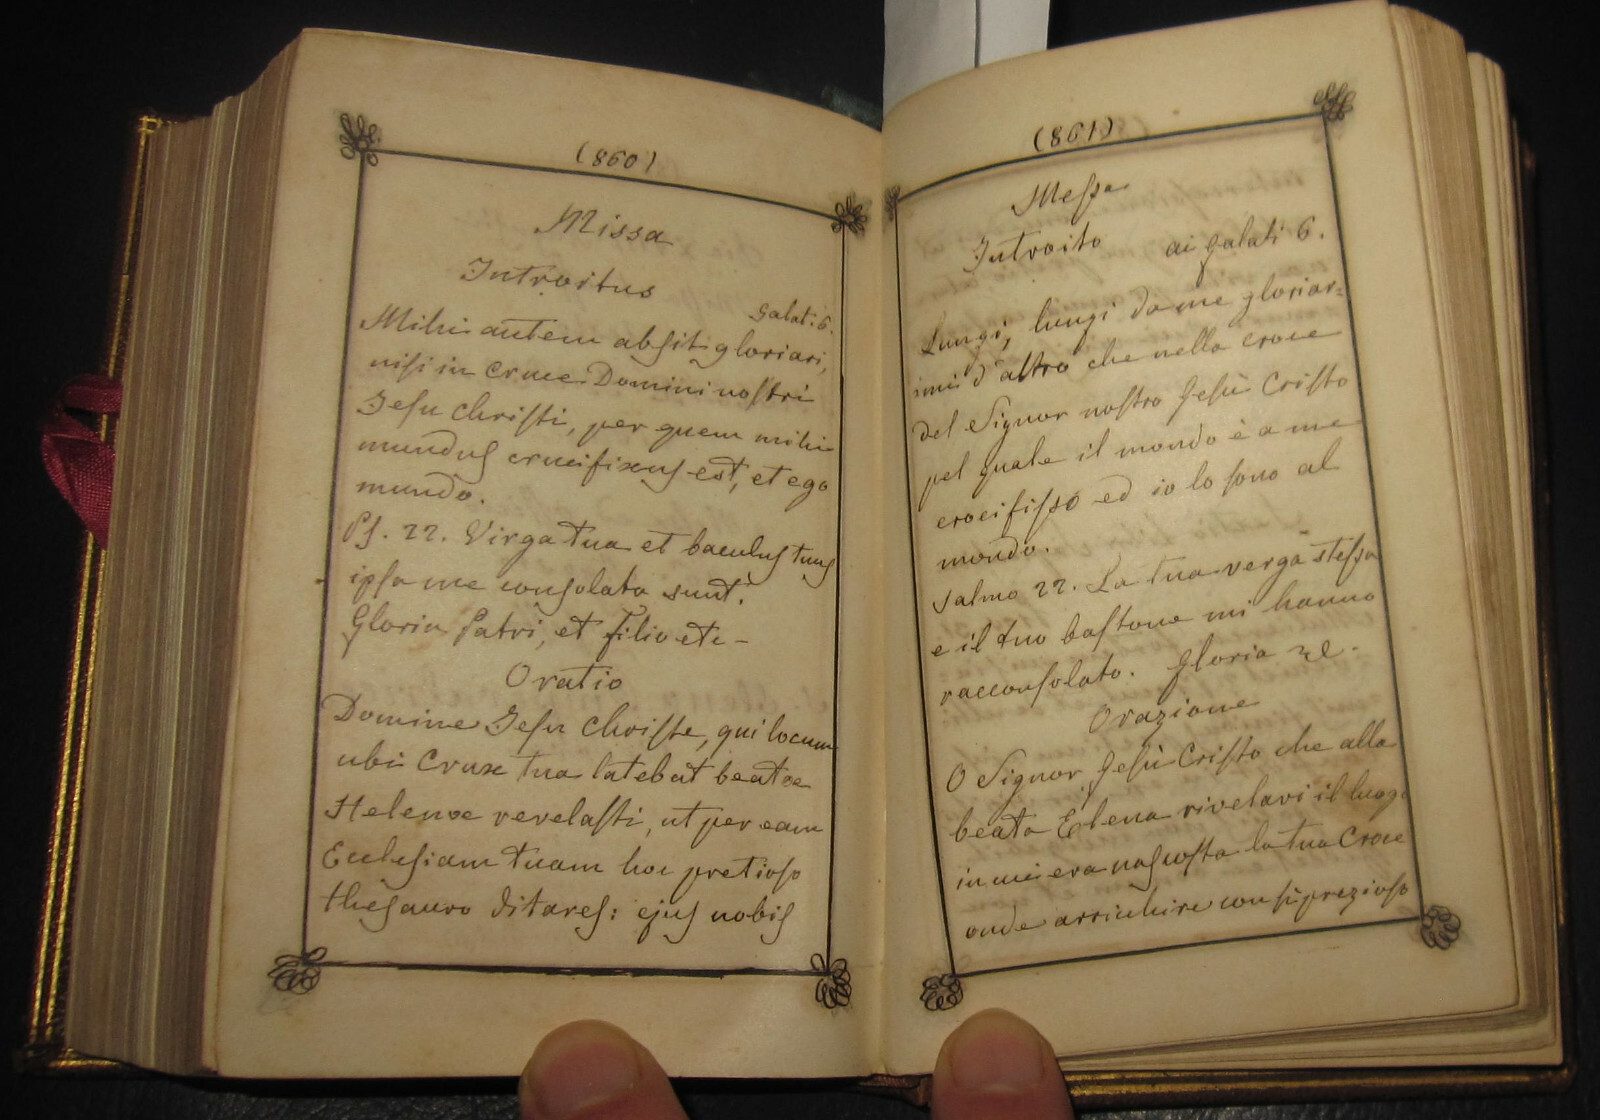 (860)
Missa
Introitus
Galat. 6.
Mihi autem absit gloriari,
nisi in Cruce Domini nostri
Jesu Christi, per quem mihi
mundus crucifixus est, et ego
mundo.
Ps. 22. Virga tua et baculus tuus
ipsa me consolata sunt.
Gloria Patri, et Filio etc -
Oratio
Domine Jesu Christe, qui locum
ubi Crux tua latebat beatæ
Helenæ revelasti, ut per eam
Ecclesiam tuam hoc pretioso
thesauro ditares: ejus nobis
(861)
Messa
Introito ai Galati 6.
Lungi, lungi da me gloriar=
imi d'altro che nella croce
del Signor nostro Gesù Cristo
pel quale il mondo è a me
crocifisso ed io lo sono al
mondo.
Salmo 22. La tua verga stessa
e il tuo bastone mi hanno
racconsolato. Gloria &c.
Orazione
O Signor Gesù Cristo che alla
beata Elena rivelavi il luogo
in cui era nascosta la tua Croce
onde arricchire con sì prezioso